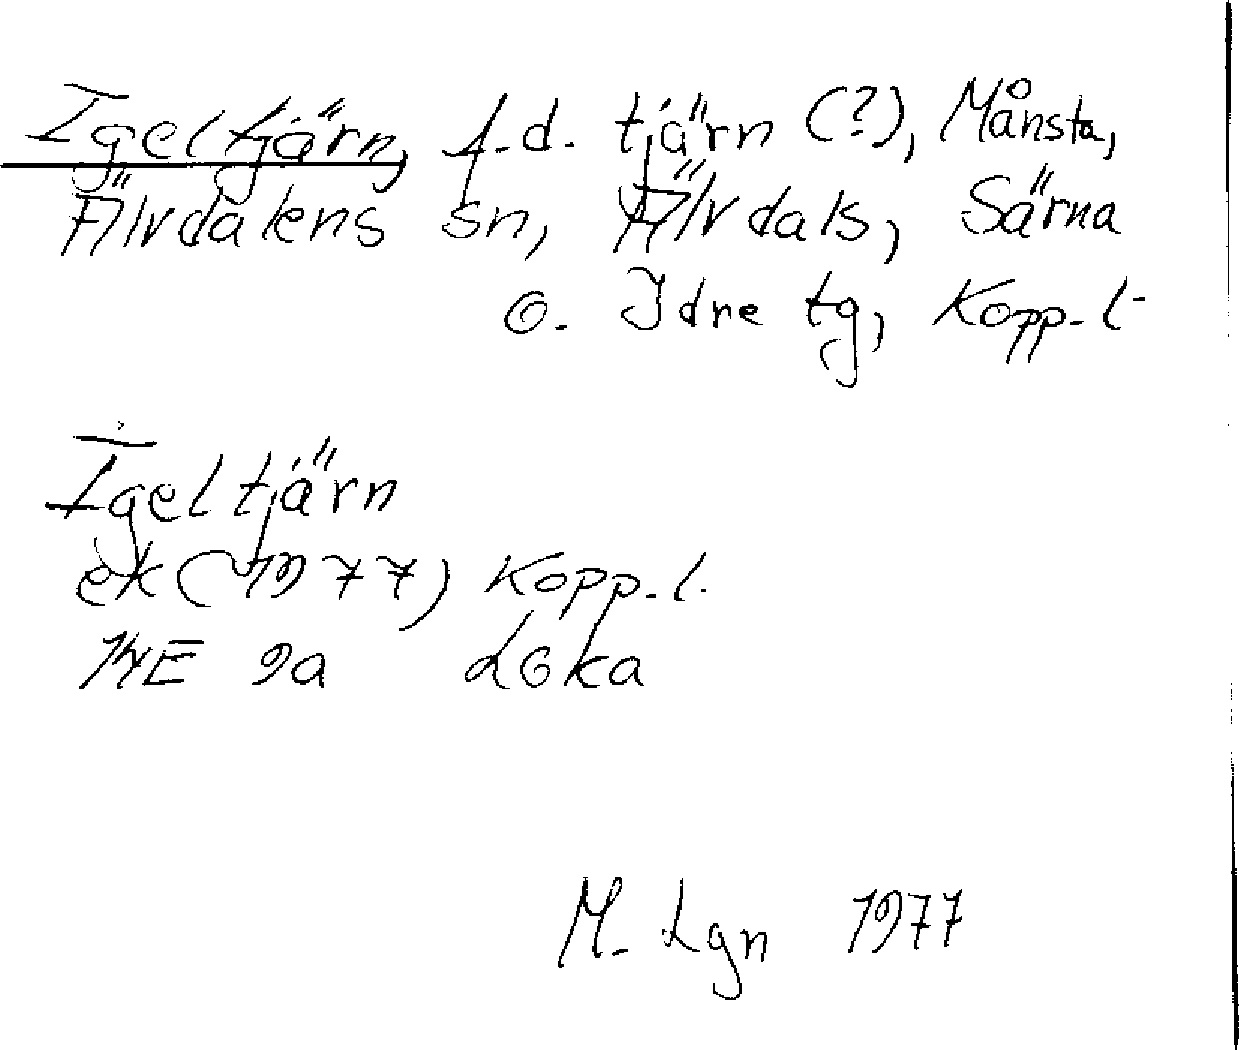 Igeltjärn, f.d. tjärn (?), Månsta,
Älvdalens sn, Älvdals, Särna
o. Idre tg, Kopp. l.
Igeltjärn
ek (~1977) Kopp. l.
14E 9a Loka
M. Lgn 1977